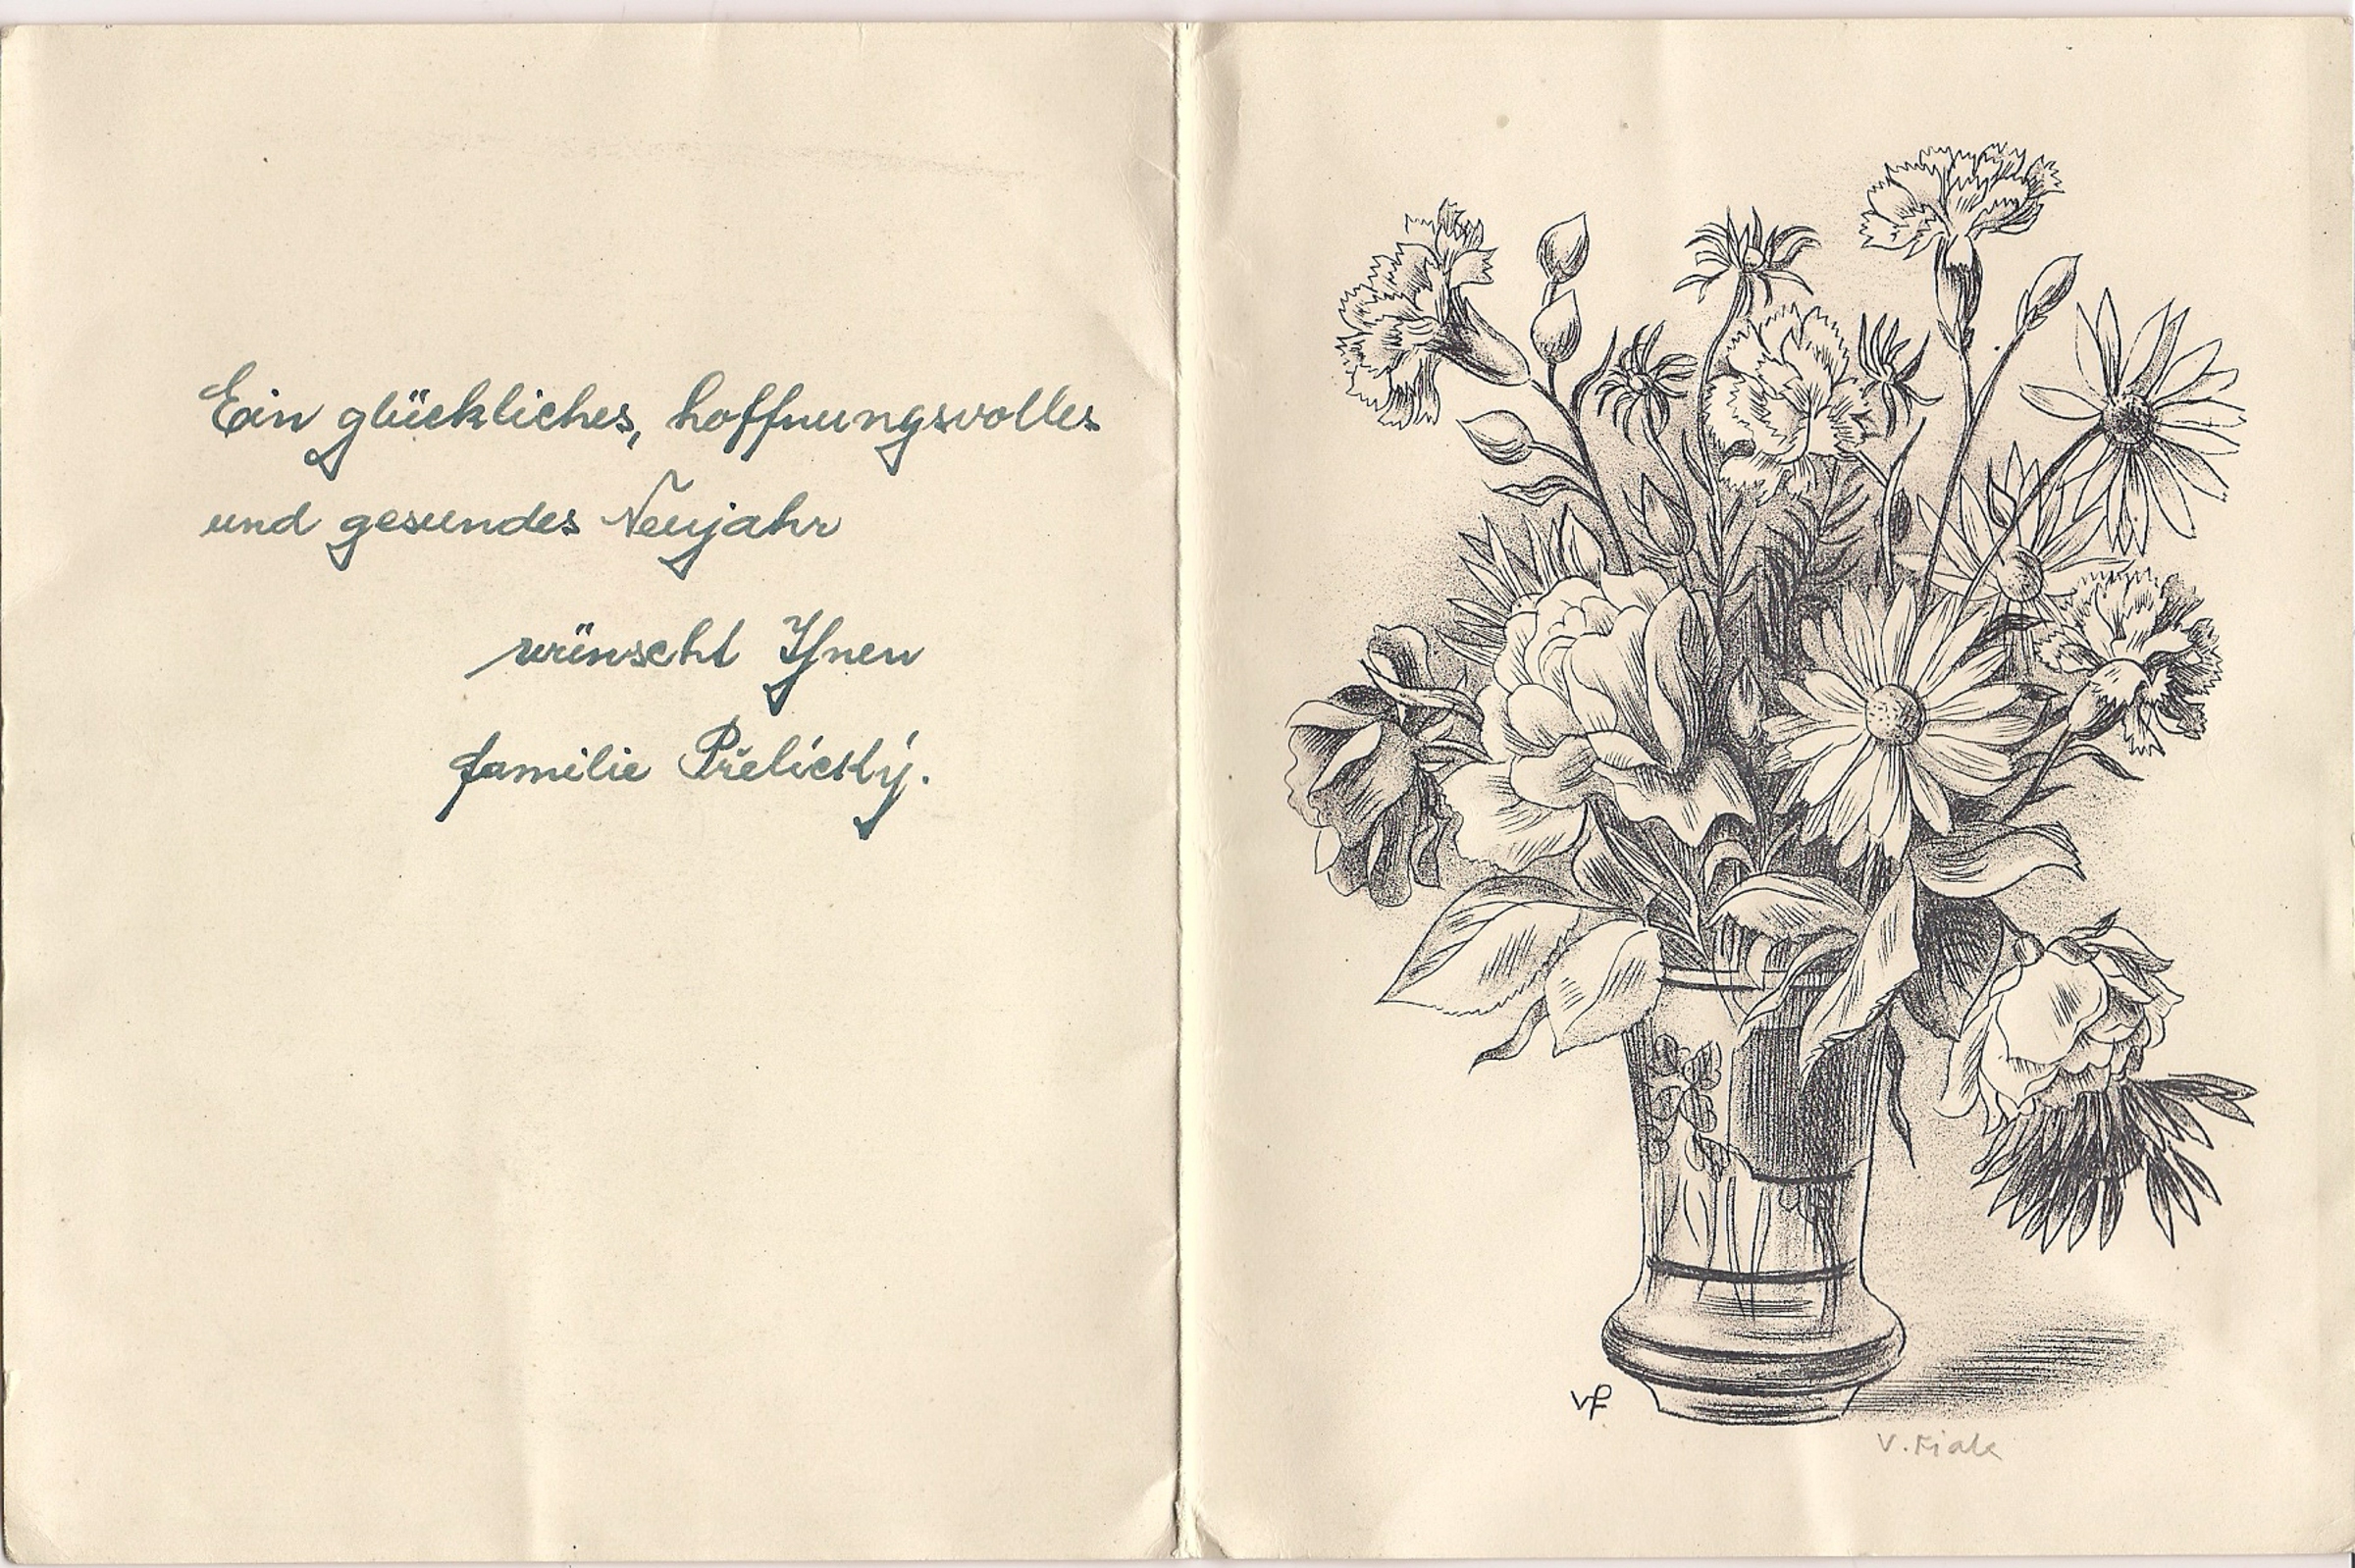 Ein glückliches, hoffnungsvolles
und gesundes Neujahr
wünscht Ihnen
familie Přelícský.
VF
V. Fiala